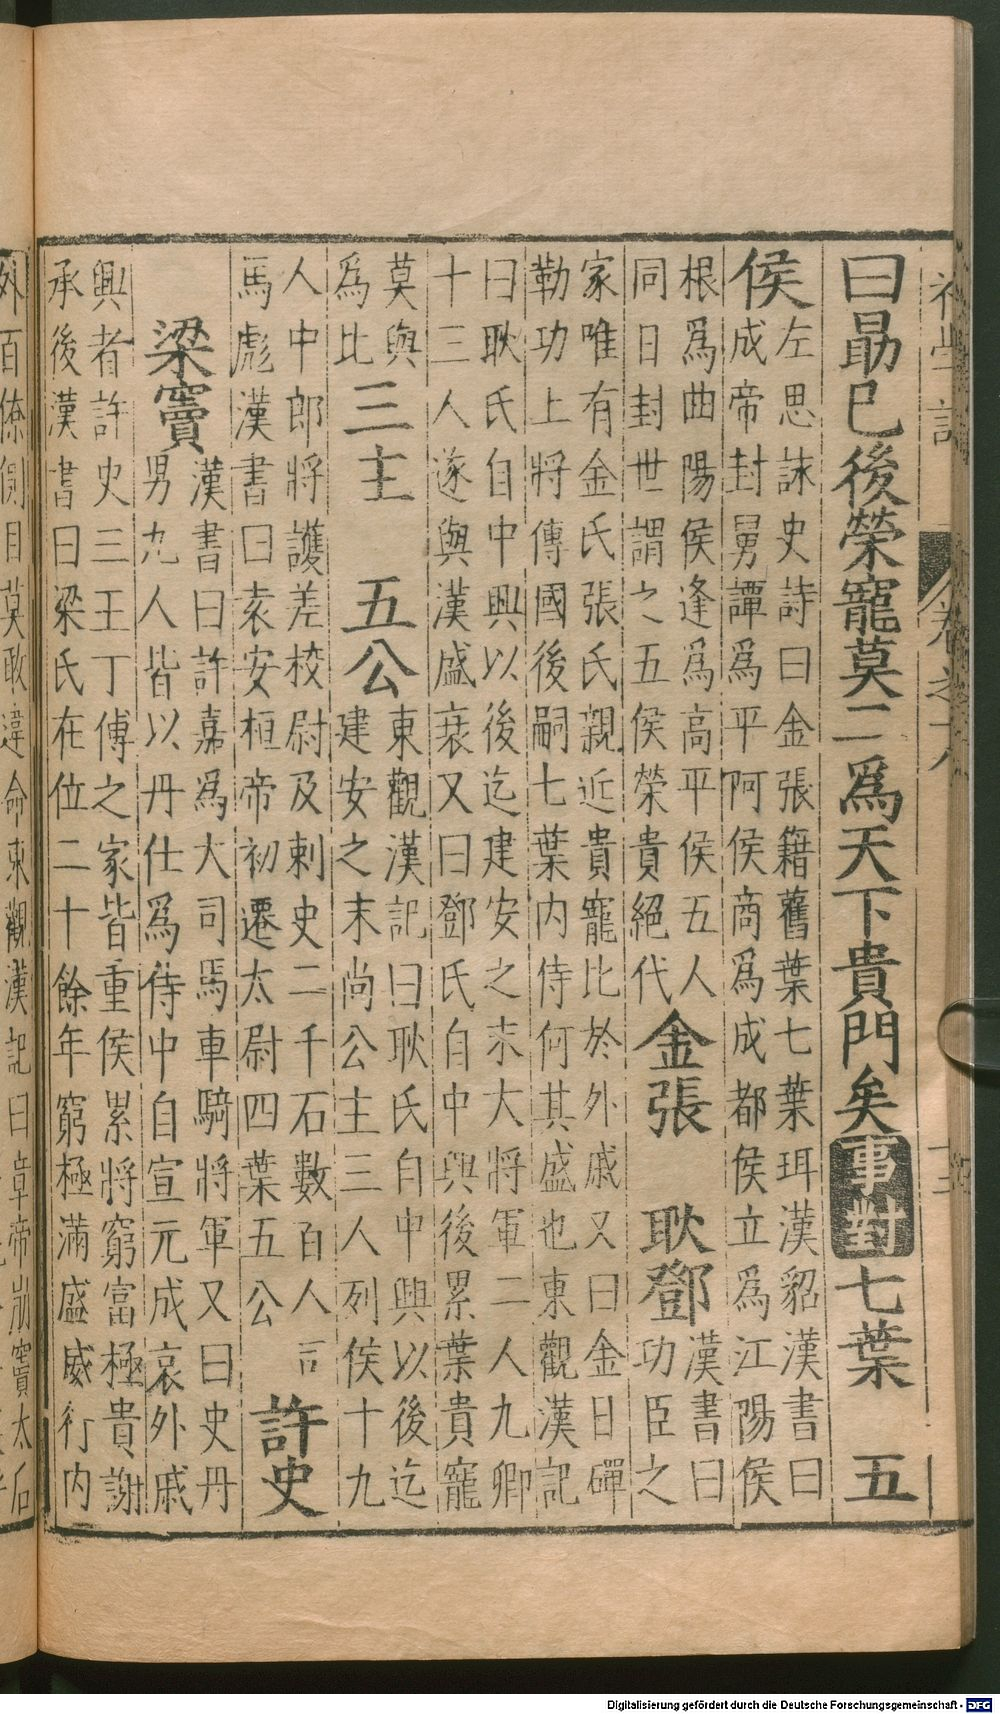 初學記
卷之十八
曰勗已後榮寵莫二爲天下貴門矣 事對 七葉 五
侯
左思詠史詩曰金張籍舊葉七葉珥漢貂漢書曰
成帝封舅譚爲平阿侯商爲成都侯立爲江陽侯
根爲曲陽侯逢爲高平侯五人
同日封世謂之五侯榮貴絕代
金張 耿鄧
漢書曰
功臣之
家唯有金氏張氏親近貴寵比於外戚又曰金日磾
勒功上將傳國後嗣七葉内侍何其盛也東觀漢記
曰耿氏自中興以後迄建安之末大將軍二人九卿
十三人遂與漢盛衰又曰鄧氏自中興後累葉貴寵
莫與
爲比
三主 五公
東觀漢記曰耿氏自中興以後迄
建安之末尚公主三人列侯十九
人中郎將護差校尉及剌史二千石數百人司
馬彪漢書曰袁安桓帝初遷太尉四葉五公
許史
梁竇
漢書曰許嘉爲大司馬車騎將軍又曰史丹
男九人皆以丹仕爲侍中自宣元成哀外戚
興者許史三王丁傅之家皆重侯累將窮富極貴謝
承後漢書曰梁氏在位二十餘年窮極滿盛威行内
外百僚側目莫敢違命東觀漢記曰章帝崩竇太后
Digitalisierung gefördert durch die Deutsche Forschungsgemeinschaft - DFG